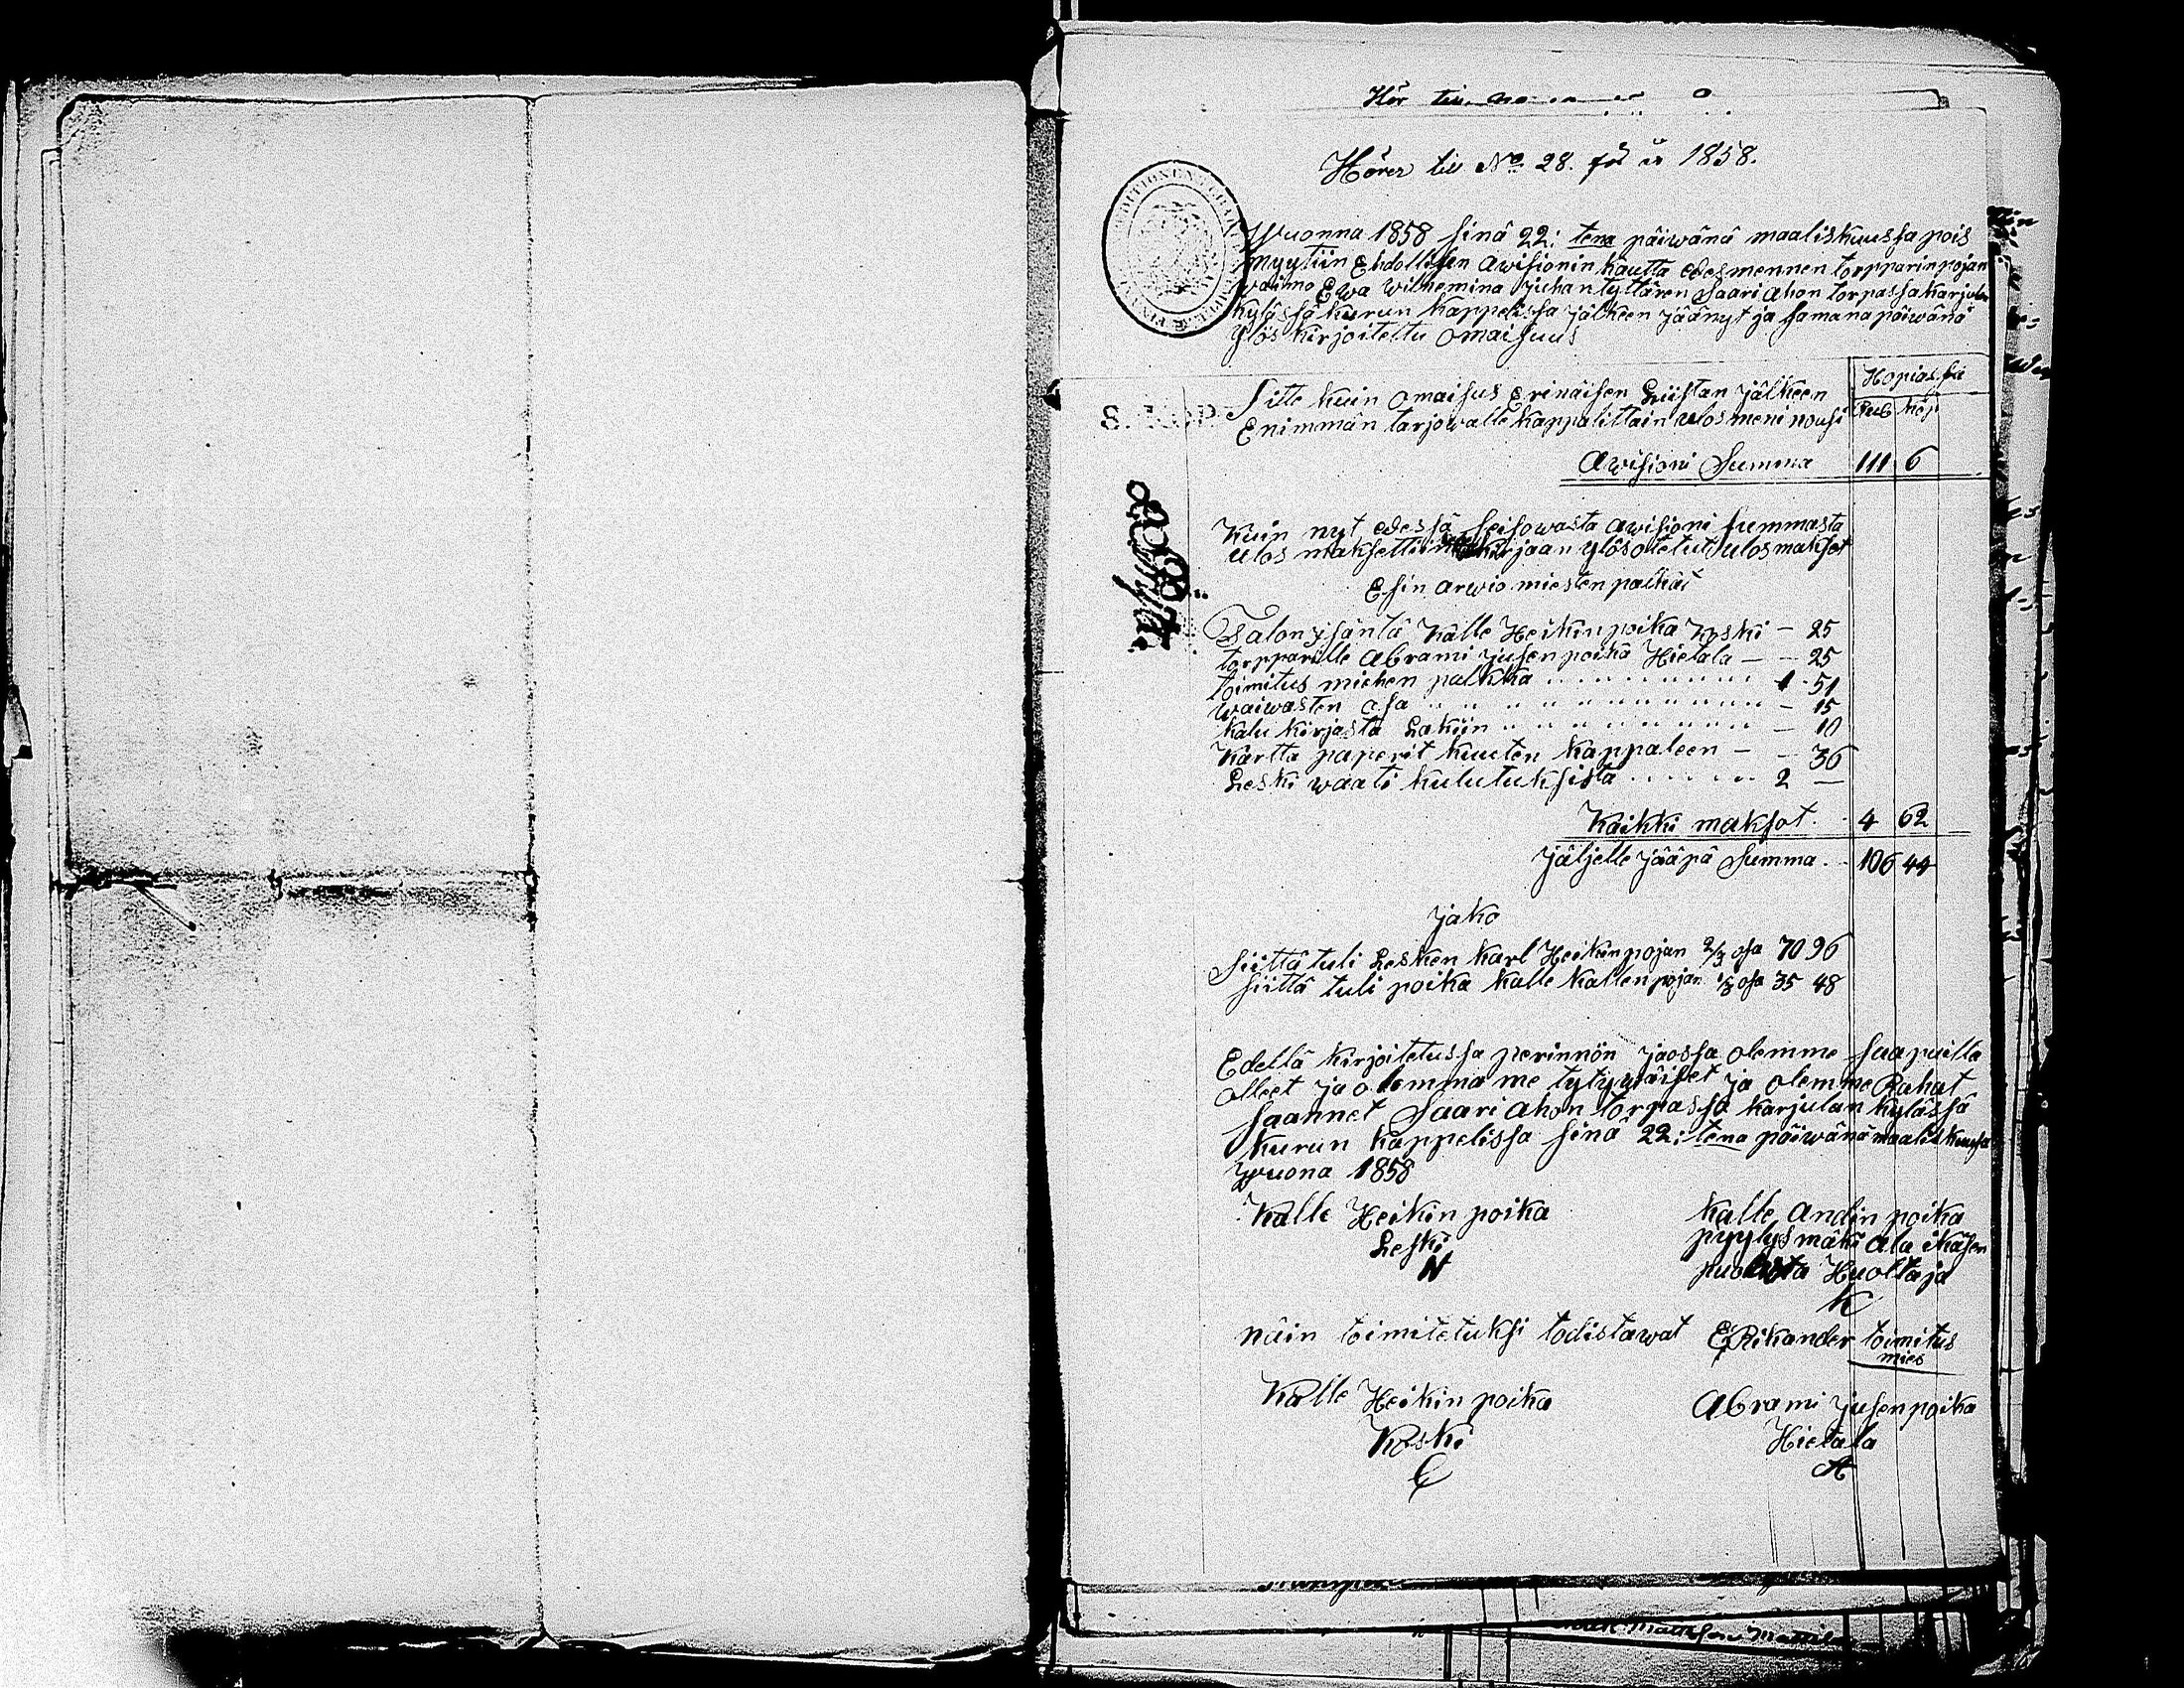 Hörer till No 28. för år 1858.
Wuonna 1858 sinä 22: tena päiwänä maaliskuussa pois
myytiin Ehdollisen Awisionin kautta edesmennen torpparin pojan
waimo Ewa Wilhemina Juhan tyttären Saari Ahon torpassa Karjulan
kylässä Kurun Kappelissa jälkeen jäänyt ja samana päiwänä
ylös kirjoitettu omaisuus
Hopiassa
Rub kop
Sitte kuin omaisus Erinäisen Liistan jälkeen
Enimmän tarjowalle kappalittain ulos meni nousi
8. KOP.
Awisioni Summa 111 6
Kuin nyt edessä seisowasta awisioni summasta
ulos maksettiin kirjaan ylösotetut ulosmaksot
Esin arwio miesten palkat
Talon ysäntä Kalle Heikin poika Koski – 25
torpparille Abrami Jusen poika Hietala – – 25
toimitus miehen palkka 1 51
waiwasten osa – 15
kalu kirjasta Lakiin – 10
Kartta paperit kuuten kappaleen – – 36
Leski waati kulutuksista 2 –
Kaikki maksot 4 62
Jäljelle jääpä Summa 106 44
Jako
Siittä tuli Lesken Karl Heikin pojan 2/3 osa 70 96
Siittä tuli poika Kalle Kallen pojan 1/3 osa 35 48
Edellä kirjoitetussa perinnön jaossa olemme saapuilla
olleet ja olemma me tytywäiset ja olemme Rahat
saannet Saari Ahon torpassa Karjulan kylässä
Kurun Kappelissa sinä 22: tena päiwänä maaliskuusa
Wuona 1858
Kalle Heikin poika
Leski
N
Kalle Andin poika
pyylysmäki ala ikäsen
puolesta Huoltaja
K
näin toimitetuksi todistawat
E Rikander toimitus
mies
Kalle Heikin poika
Koski
Abrami Jusen poika
Hietala
A